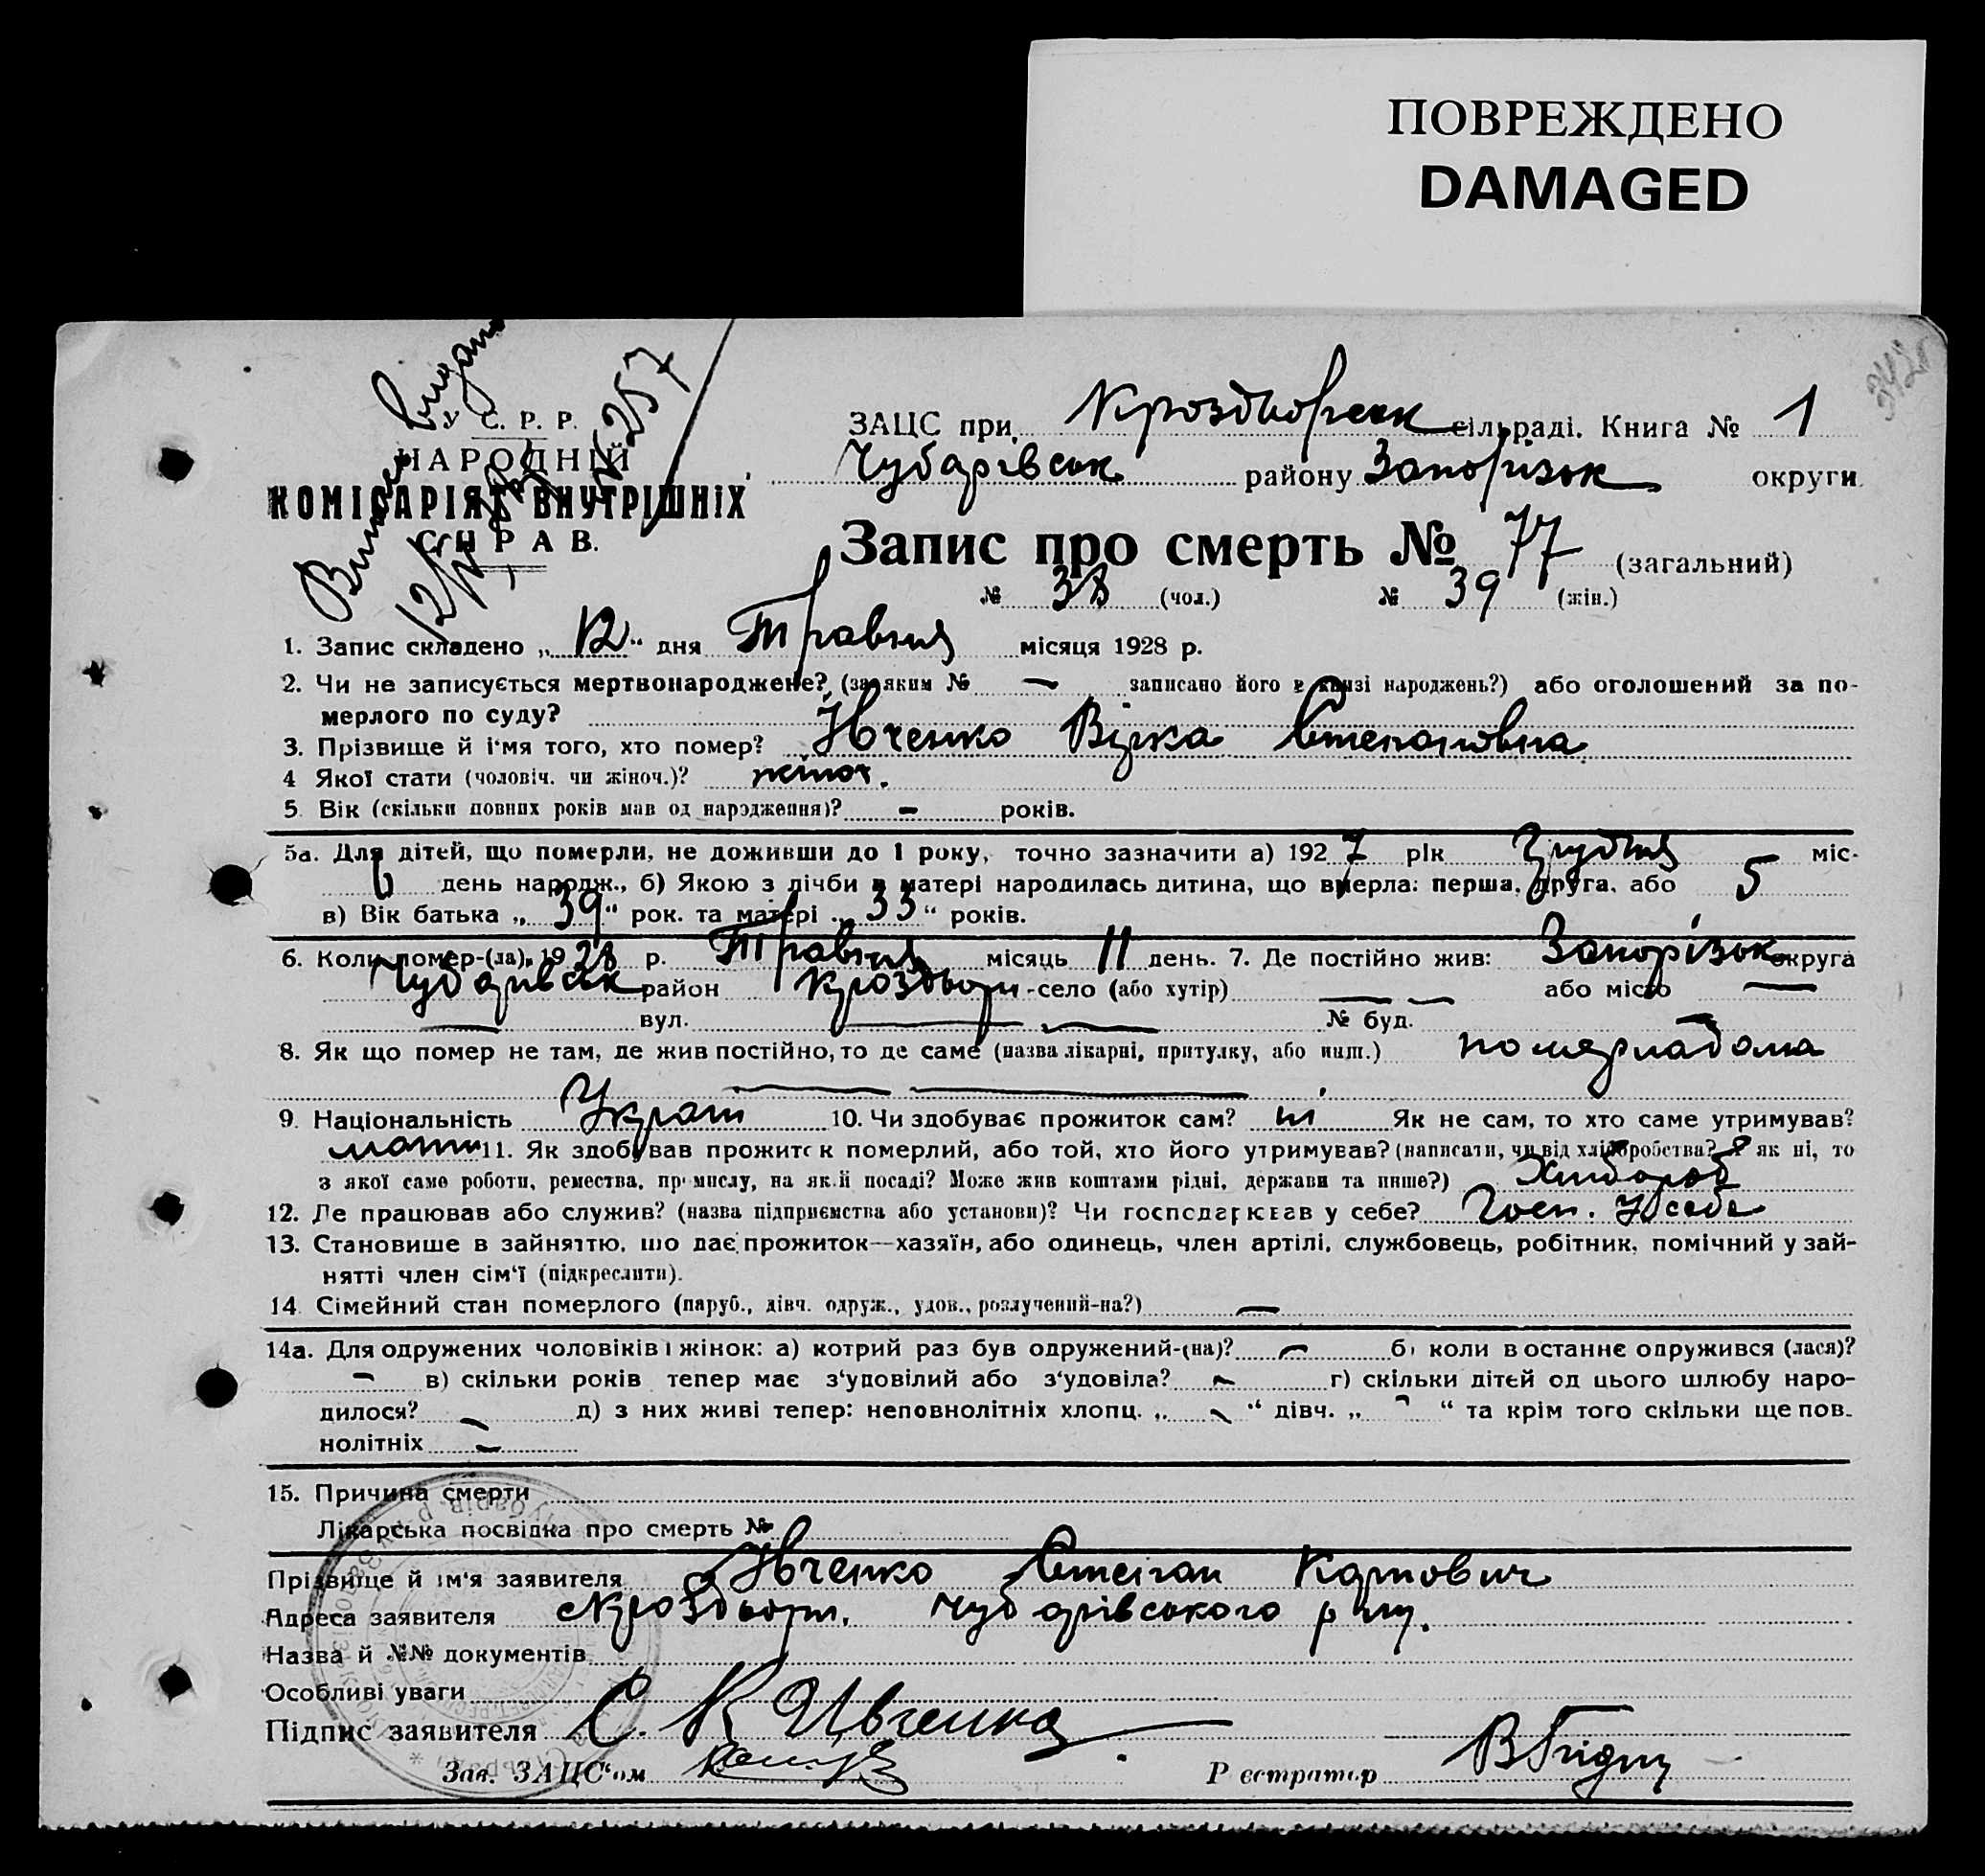 ПОВРЕЖДЕНО
DAMAGED
342
Витяг видано
12/V 28 № 257
У С. Р. Р.
НАРОДНІЙ
КОМІСАРІЯТ ВНУТРІШНІХ
СПРАВ.
ЗАЦС при Кроздворськ сільраді. Книга № 1
Чубарівськ району Запорізьк округи
Запис про смерть № 77 (загальний)
№ 38 (чол.) № 39 (жін.)
1. Запис складено „12“ дня Травня місяця 1928 р.
2. Чи не записується мертвонароджене? (за яким № — записано його в книзі народжень?) або оголошений за по-
мерлого по суду?
3. Прізвище й ім'я того, хто помер? Івченко Вірка Степановна
4 Якої стати (чоловіч. чи жіноч.)? жіноч.
5. Вік (скільки повних років мав од народження)? - років.
5а. Для дітей, що померли, не доживши до 1 року, точно зазначити а) 1927 рік Грудня міс.
6 день народж., б) Якою з лічби в матері народилась дитина, що вмерла: перша, друга, або 5
в) Вік батька „39“ рок. та матері „33“ років.
6. Коли помер-(ла), 1928 р. Травня місяць 11 день. 7. Де постійно жив: Запорізьк округа
Чубарівськ район Кроздвори -село (або хутір) — — або місто —
— вул. — — № буд. —
8. Як що помер не там, де жив постійно, то де саме (назва лікарні, притулку, або инш.) померла дома
— —
9. Національність Украін 10. Чи здобуває прожиток сам? ні Як не сам, то хто саме утримував?
мати 11. Як здобував прожиток померлий, або той, хто його утримував? (написати, чи від хліборобства? Як ні, то
з якої саме роботи, ремества, промислу, на якій посаді? Може жив коштами рідні, держави та инше?) Хлібороб
12. Де працював або служив? (назва підприємства або установи)? Чи господарював у себе? Госп. у себе
13. Становище в зайняттю, що дає прожиток—хазяїн, або одинець, член артілі, службовець, робітник, помічний у зай-
нятті член сім'ї (підкреслити).
14. Сімейний стан померлого (паруб., дівч. одруж., удов., розлучений-на?) —
14а. Для одружених чоловіків і жінок: а) котрий раз був одружений-(на)? — б) коли востаннє одружився (лася)?
- в) скільки років тепер має з'удовілий або з'удовіла? - г) скільки дітей од цього шлюбу наро-
дилося? - д) з них живі тепер: неповнолітніх хлопц. „-“ дівч. „-“ та крім того скільки ще пов-
нолітніх -
15. Причина смерти
Лікарська посвідка про смерть №
Прізвище й ім'я заявителя Івченко Степан Карпович
Адреса заявителя с Кроздвори, Чубарівського р ну.
Назва й №№ документів
Особливі уваги
Підпис заявителя С. К Ивченко
Зав. ЗАЦС'ом
Реєстратор